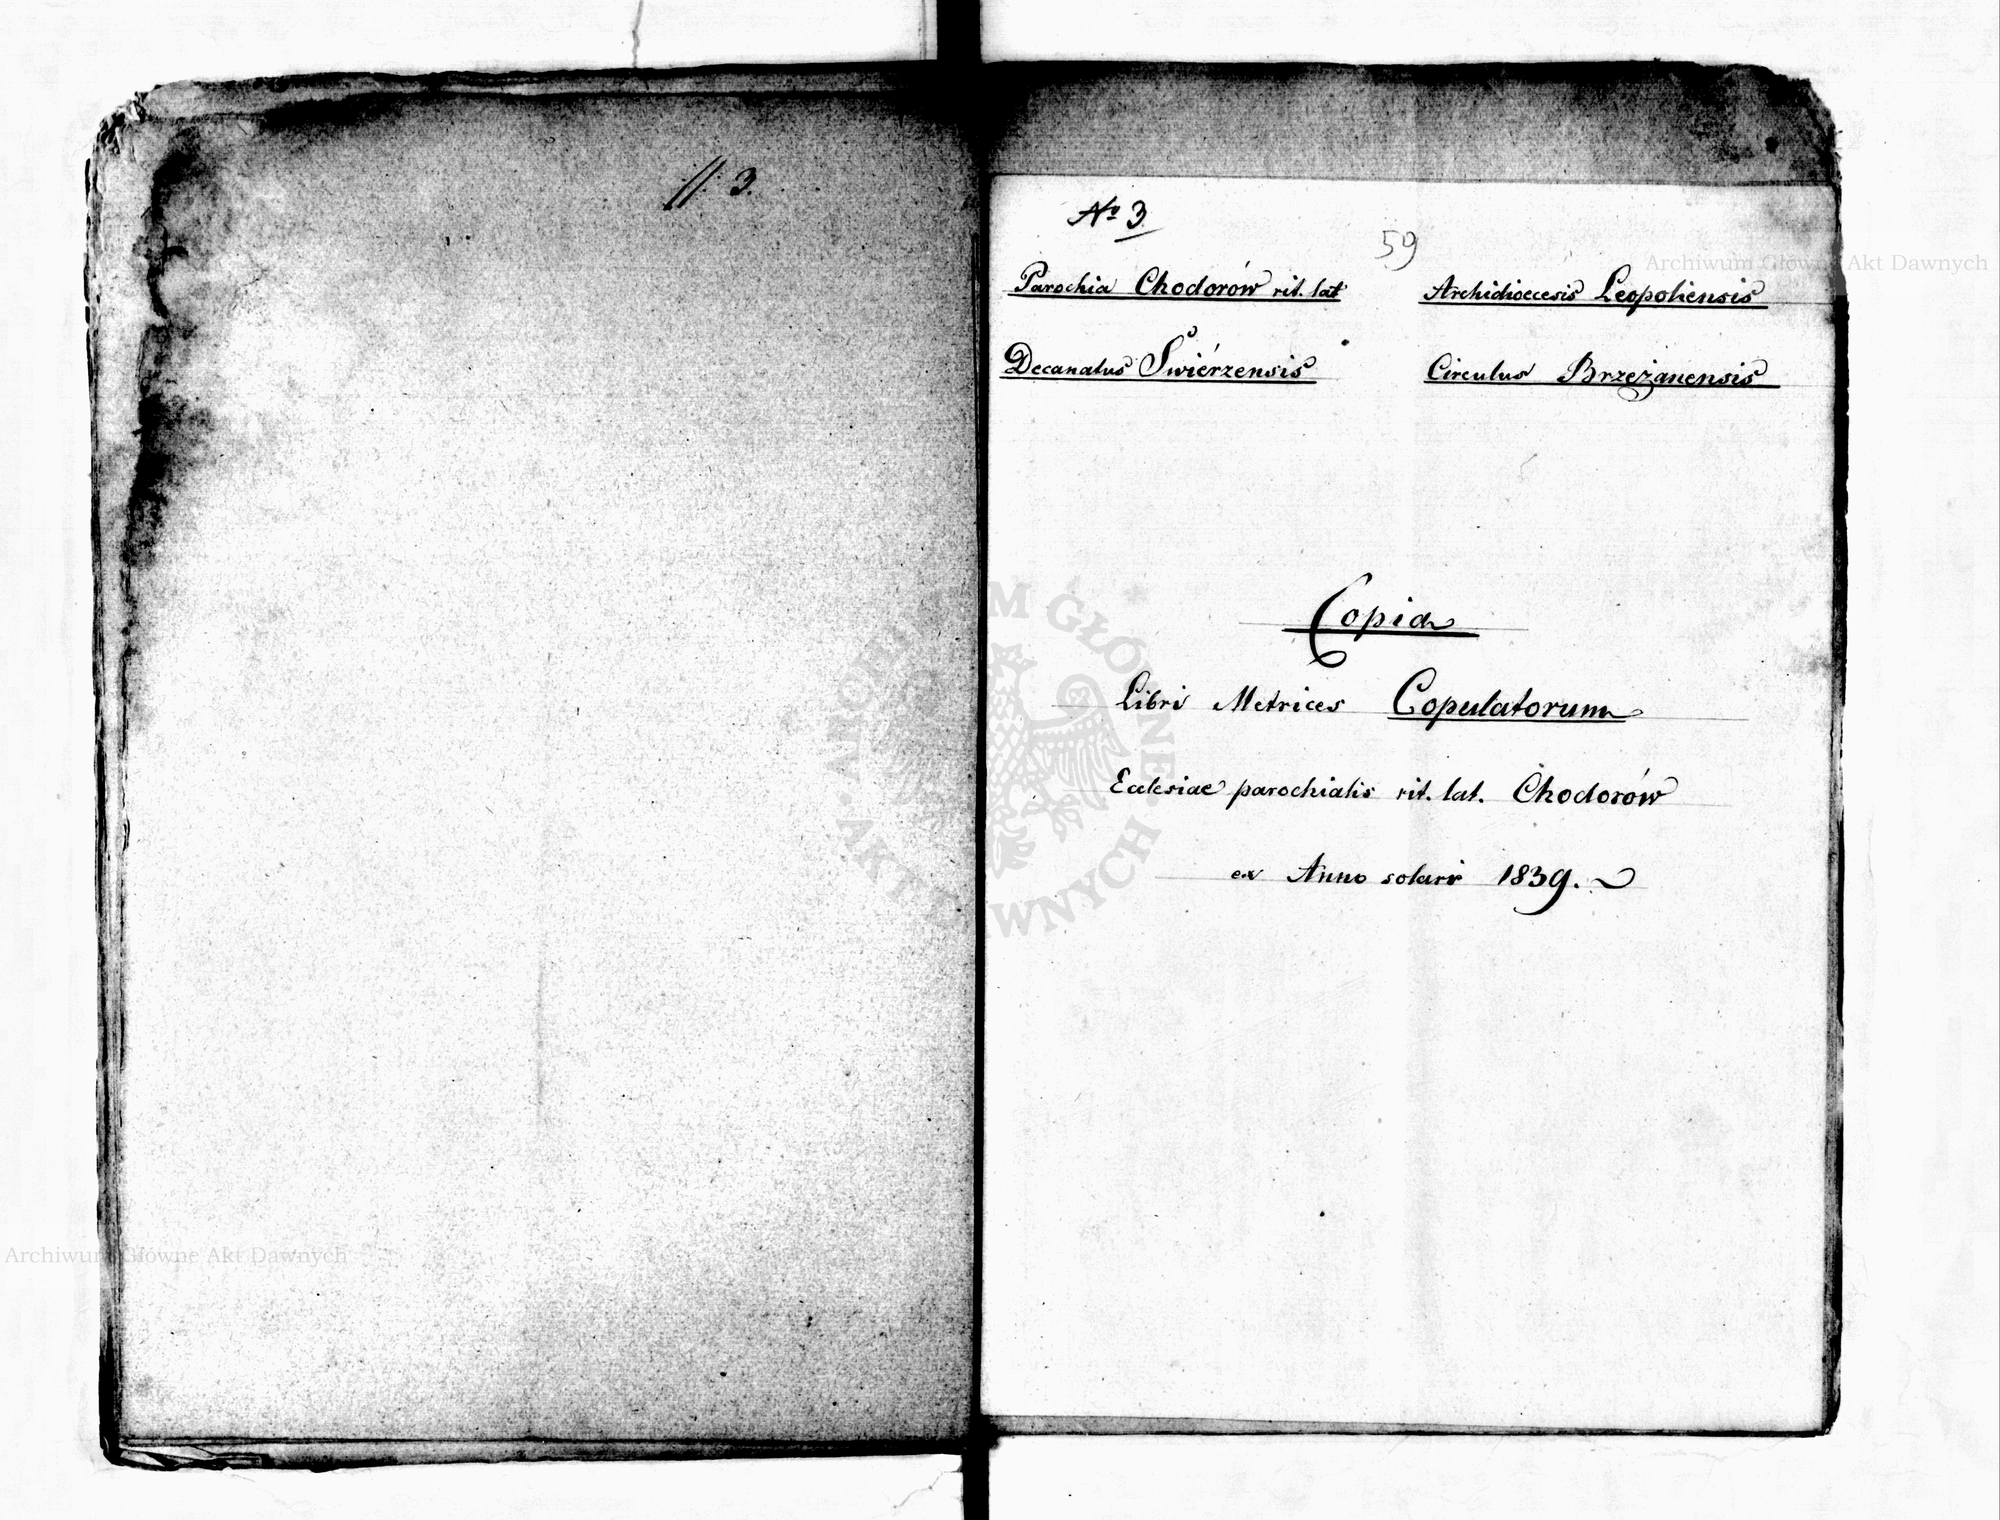 //: 3.
No 3
59
Parochia Chodorów rit. lat Archidioecesis Leopoliensis
Decanatus Swiérzensis Circulus Brzeżanensis
Copia
Libri Metrices Copulatorum
Ecclesiae parochialis rit. lat. Chodorów
ex Anno solari 1839.
Archiwum Główne Akt Dawnych
Archiwum Główne Akt Dawnych
ARCHIWUM GŁÓWNE AKT DAWNYCH